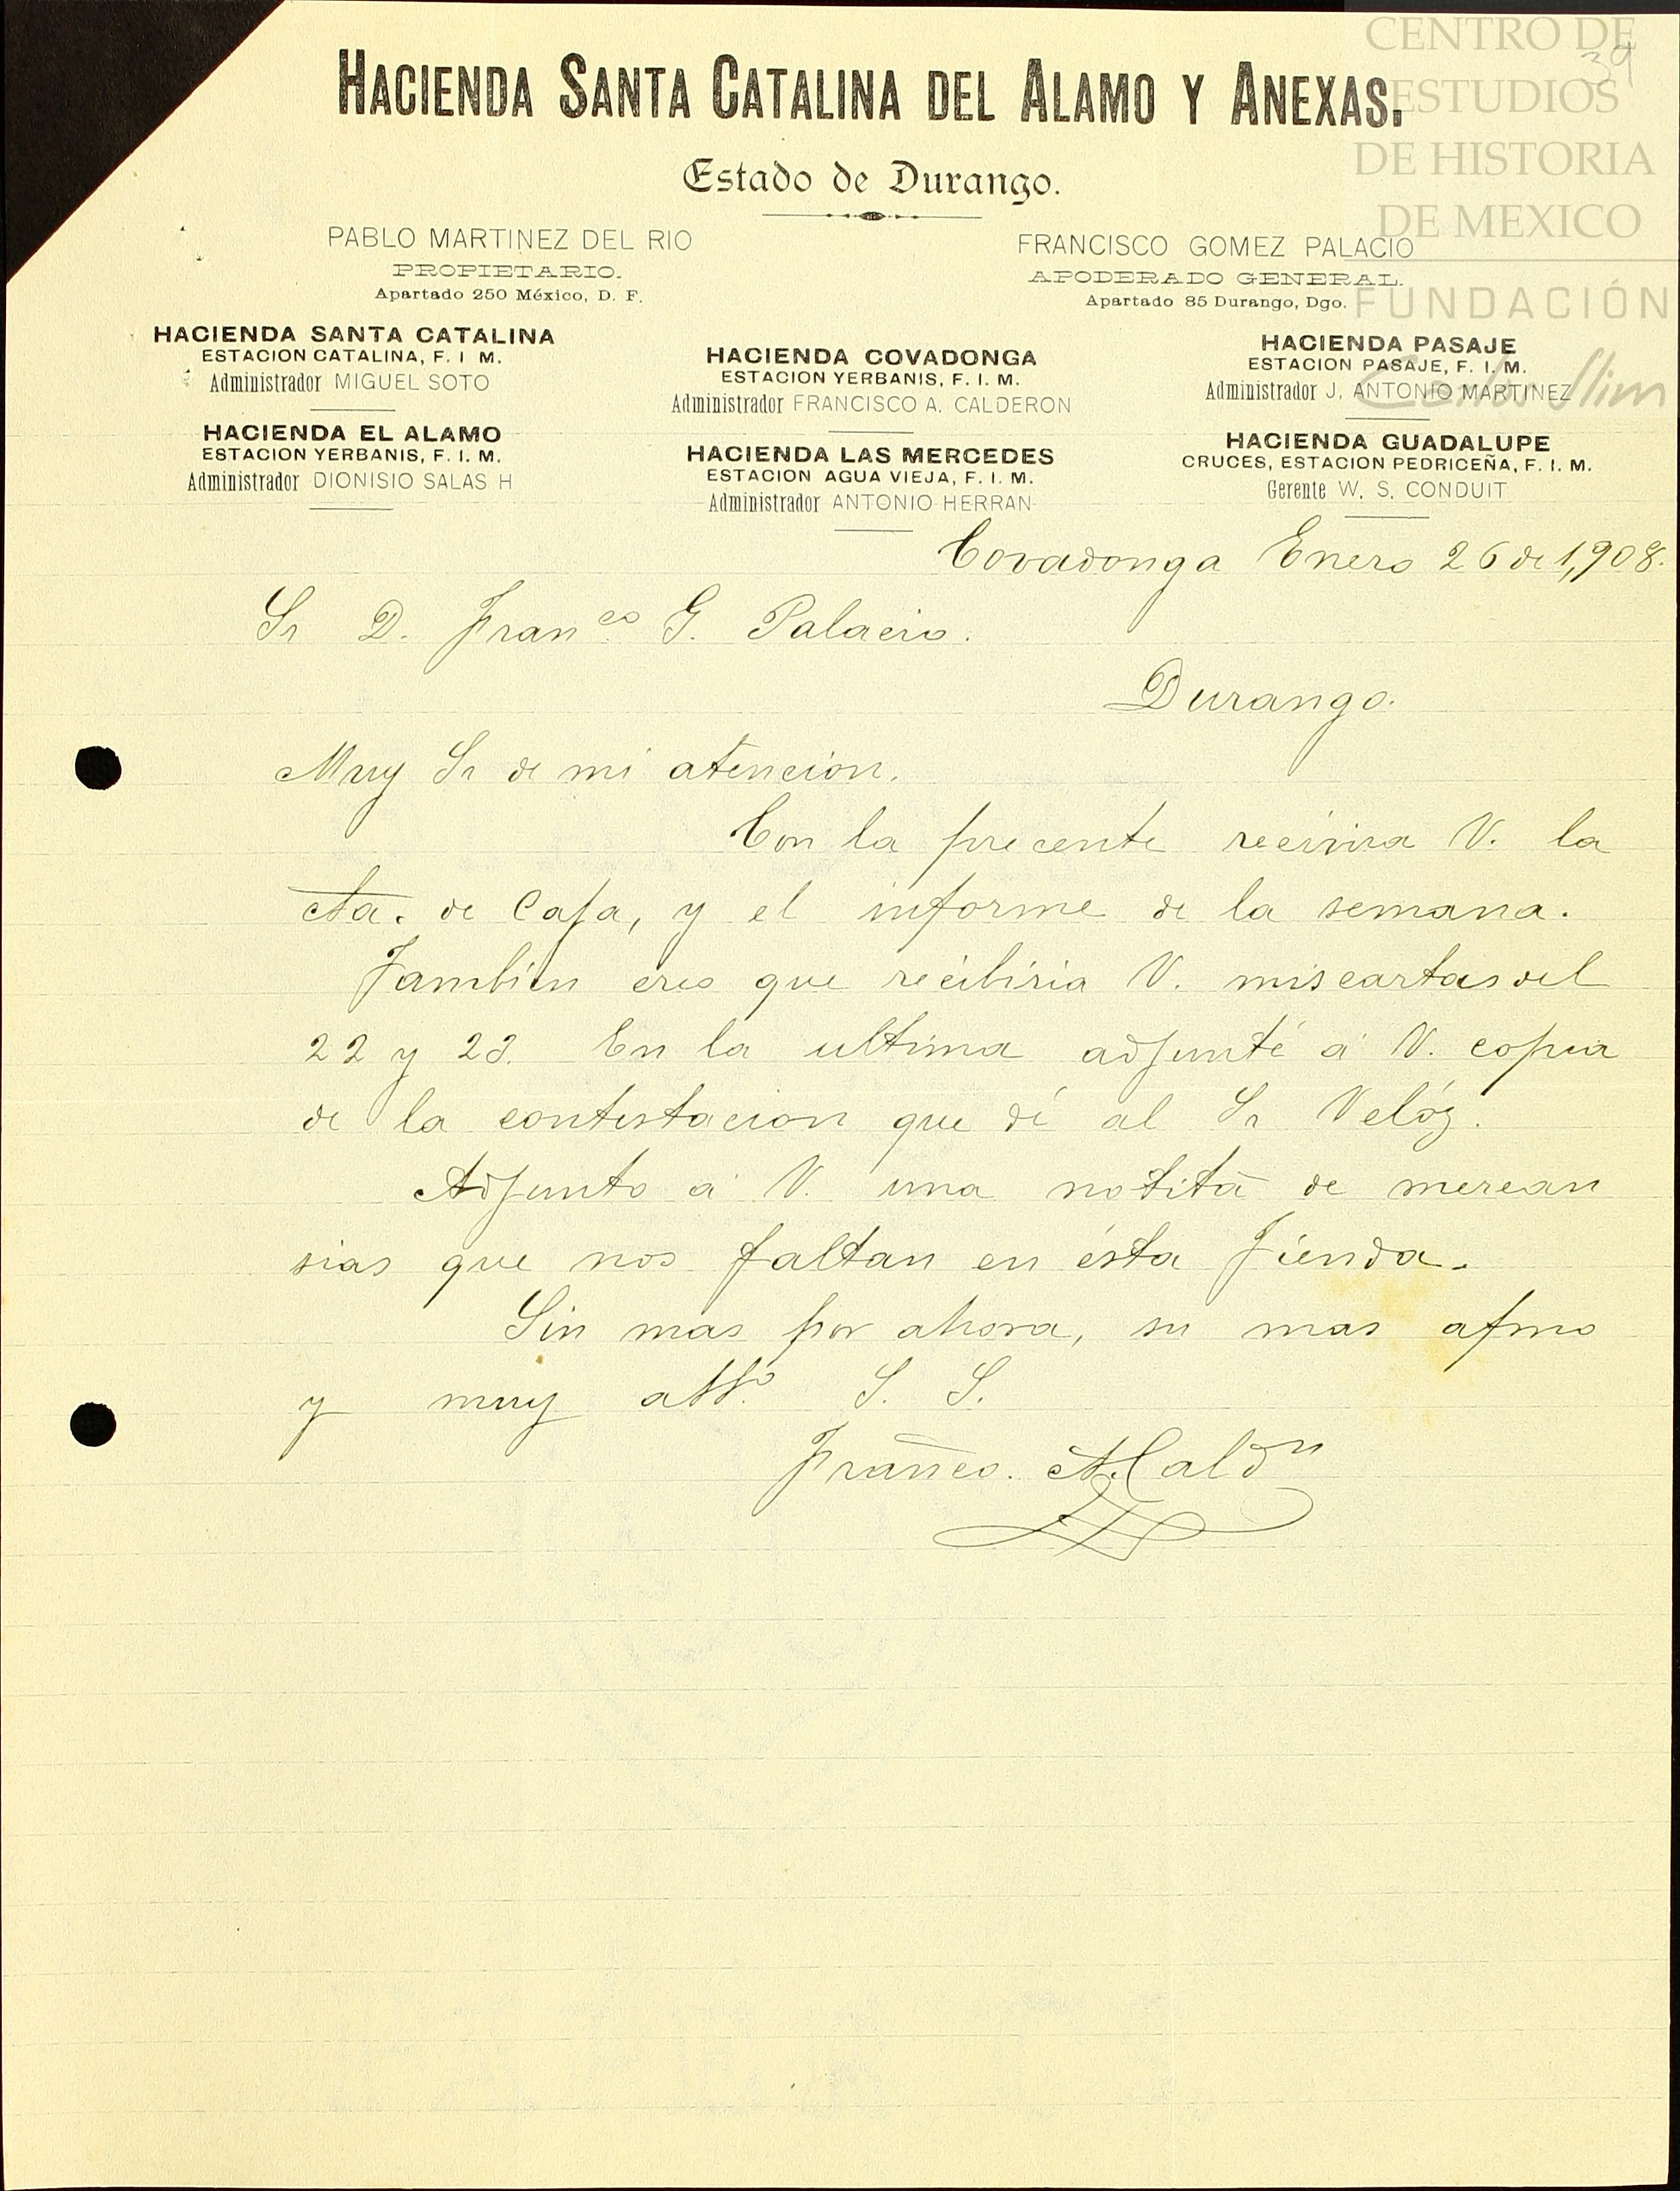 CENTRO DE
ESTUDIOS
DE HISTORIA
DE MEXICO
FUNDACIÓN
Carlos Slim
39
HACIENDA SANTA CATALINA DEL ALAMO Y ANEXAS.
Estado de Durango.
PABLO MARTINEZ DEL RIO
PROPIETARIO.
Apartado 250 México, D. F.
FRANCISCO GOMEZ PALACIO
APODERADO GENERAL.
Apartado 85 Durango, Dgo.
HACIENDA SANTA CATALINA
ESTACION CATALINA, F. I M.
Administrador MIGUEL SOTO
HACIENDA EL ALAMO
ESTACION YERBANIS, F. I. M.
Administrador DIONISIO SALAS H
HACIENDA COVADONGA
ESTACION YERBANIS, F. I. M.
Administrador FRANCISCO A. CALDERON
HACIENDA LAS MERCEDES
ESTACION AGUA VIEJA, F. I. M.
Administrador ANTONIO HERRAN
HACIENDA PASAJE
ESTACION PASAJE, F. I. M.
Administrador J. ANTONIO MARTINEZ
HACIENDA GUADALUPE
CRUCES, ESTACION PEDRICEÑA, F. I. M.
Gerente W. S. CONDUIT
Covadonga Enero 26 de 1,908.
Sr D. Franco G. Palacio.
Durango.
Muy Sr de mi atencion.
Con la precente recivira V. la
cta. de Caja, y el informe de la semana.
Tambien creo que recibiria V. mis cartas del
22 y 23. En la ultima adjunté á V. copia
de la contestacion que dí al Sr Velóz.
Adjunto á V. una notita de mercan
sias que nos faltan en ésta Tienda.
Sin mas por ahora, su mas afmo
y muy atto. S. S.
Franco. A. Caldn